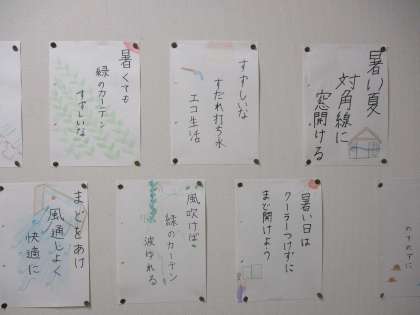 暑い夏
対角線に
窓開ける
すずしいな
すだれ打ち水
エコ生活
暑くても
緑のカーテン
すずしいな
暑い日は
クーラーつけずに
まど開けよう
風吹けば
緑のカーテン
波ゆれる
まどをあけ
風通しよく
快適に